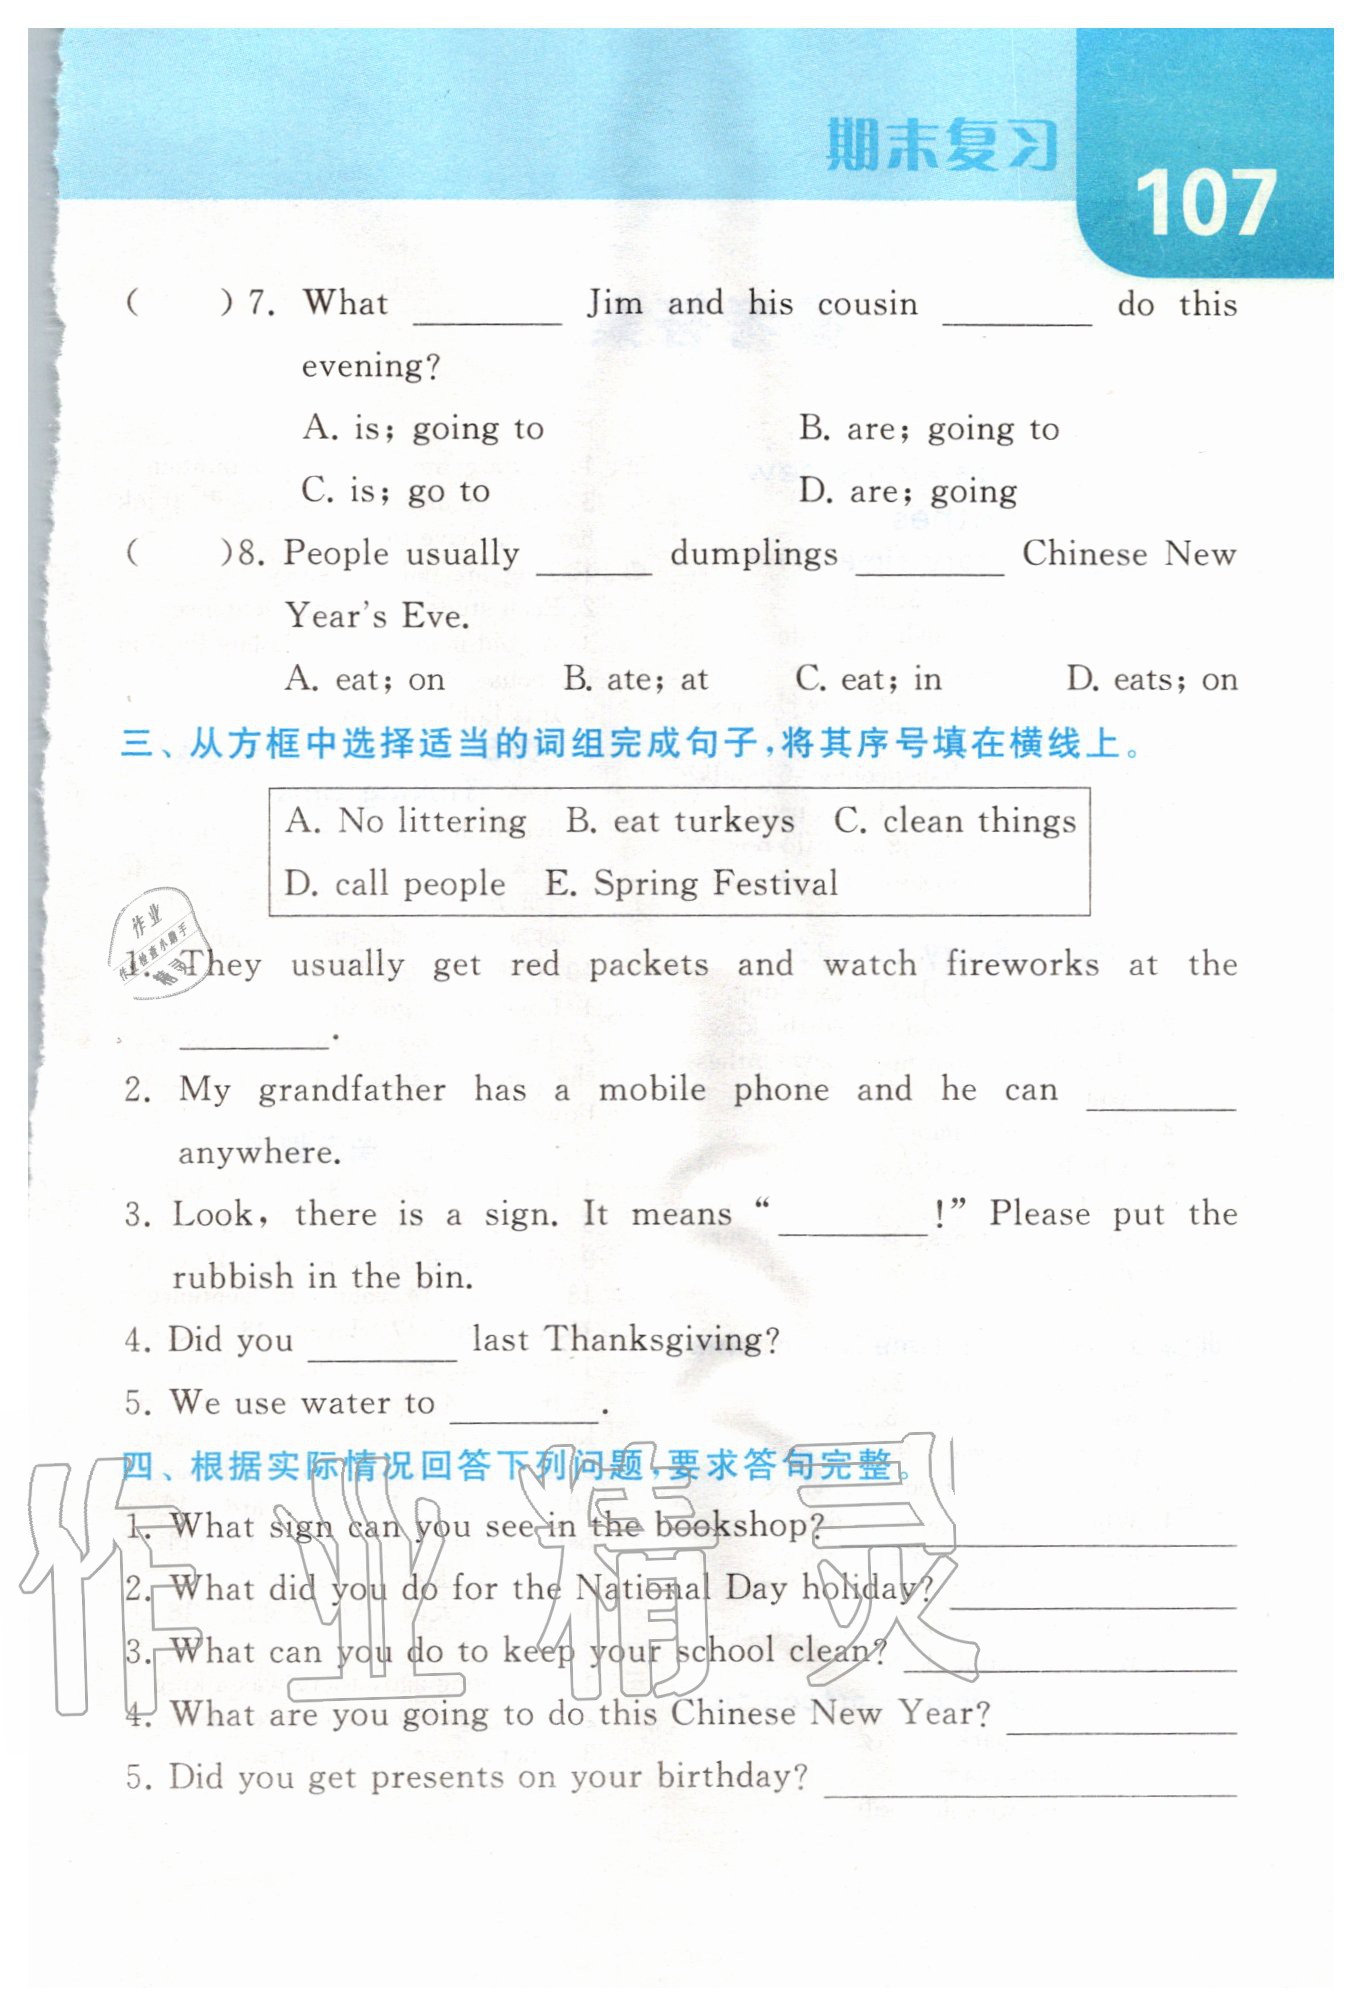 期末复习
107
(   ) 7. What ________ Jim and his cousin ________ do this
evening?
A. is; going to B. are; going to
C. is; go to D. are; going
(   )8. People usually ________ dumplings ________ Chinese New
Year's Eve.
A. eat; on B. ate; at C. eat; in D. eats; on
三、从方框中选择适当的词组完成句子,将其序号填在横线上。
A. No littering B. eat turkeys C. clean things
D. call people E. Spring Festival
1. They usually get red packets and watch fireworks at the
________.
2. My grandfather has a mobile phone and he can ________
anywhere.
3. Look, there is a sign. It means “________!” Please put the
rubbish in the bin.
4. Did you ________ last Thanksgiving?
5. We use water to ________.
四、根据实际情况回答下列问题,要求答句完整。
1. What sign can you see in the bookshop? ________
2. What did you do for the National Day holiday? ________
3. What can you do to keep your school clean? ________
4. What are you going to do this Chinese New Year? ________
5. Did you get presents on your birthday? ________
作业
作业检查小助手
精灵
作业精灵